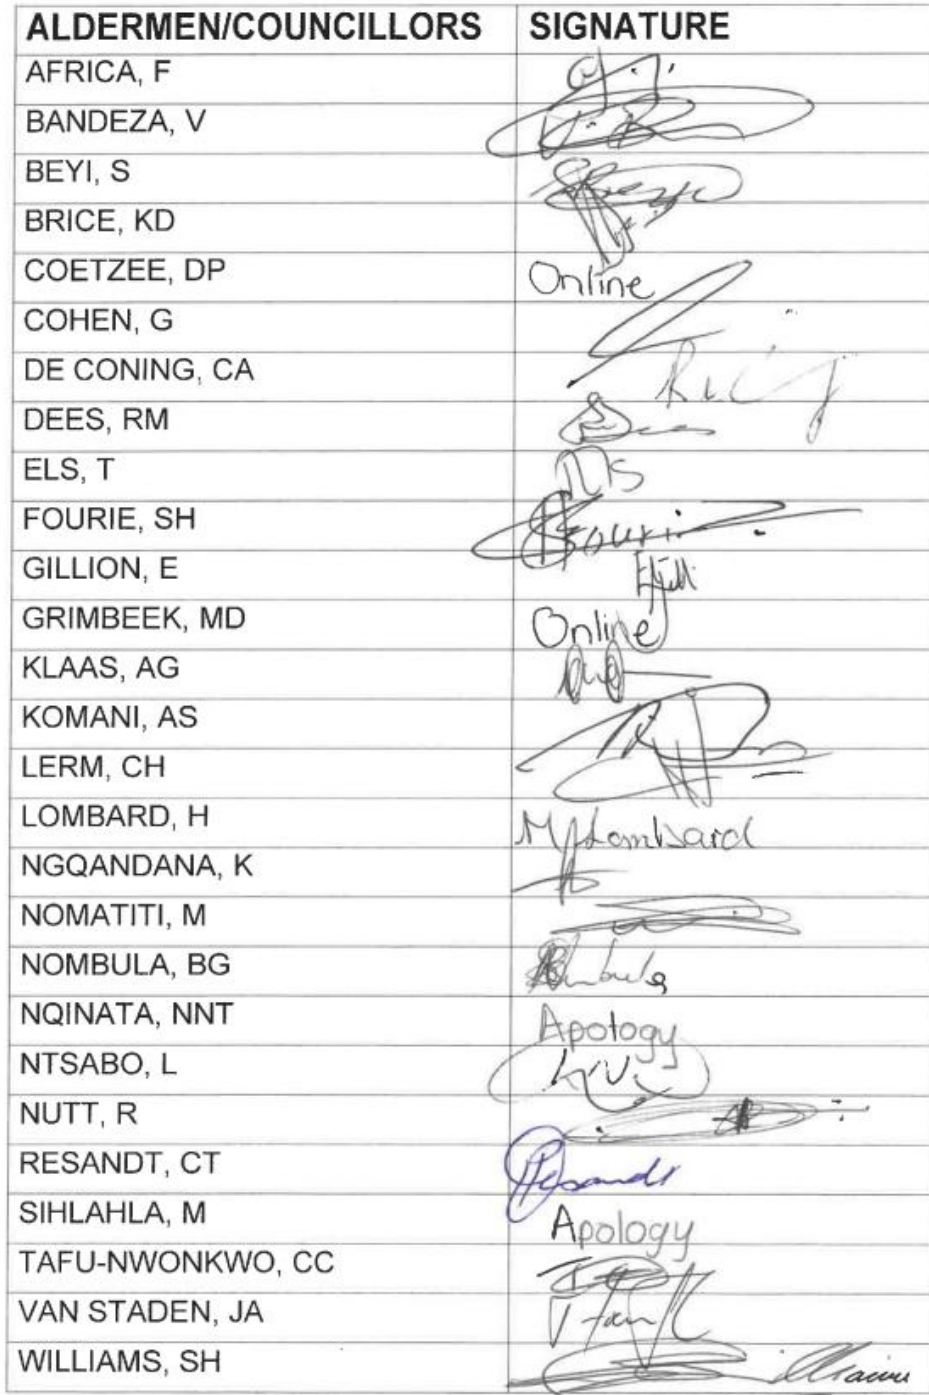 ALDERMEN/COUNCILLORS SIGNATURE
AFRICA, F
BANDEZA, V
BEYI, S
BRICE, KD
COETZEE, DP Online
COHEN, G
DE CONING, CA
DEES, RM
ELS, T
FOURIE, SH Fourie
GILLION, E
GRIMBEEK, MD Online
KLAAS, AG
KOMANI, AS
LERM, CH
LOMBARD, H Lombard
NGQANDANA, K
NOMATITI, M
NOMBULA, BG
NQINATA, NNT Apology
NTSABO, L
NUTT, R
RESANDT, CT Resandt
SIHLAHLA, M Apology
TAFU-NWONKWO, CC
VAN STADEN, JA
WILLIAMS, SH